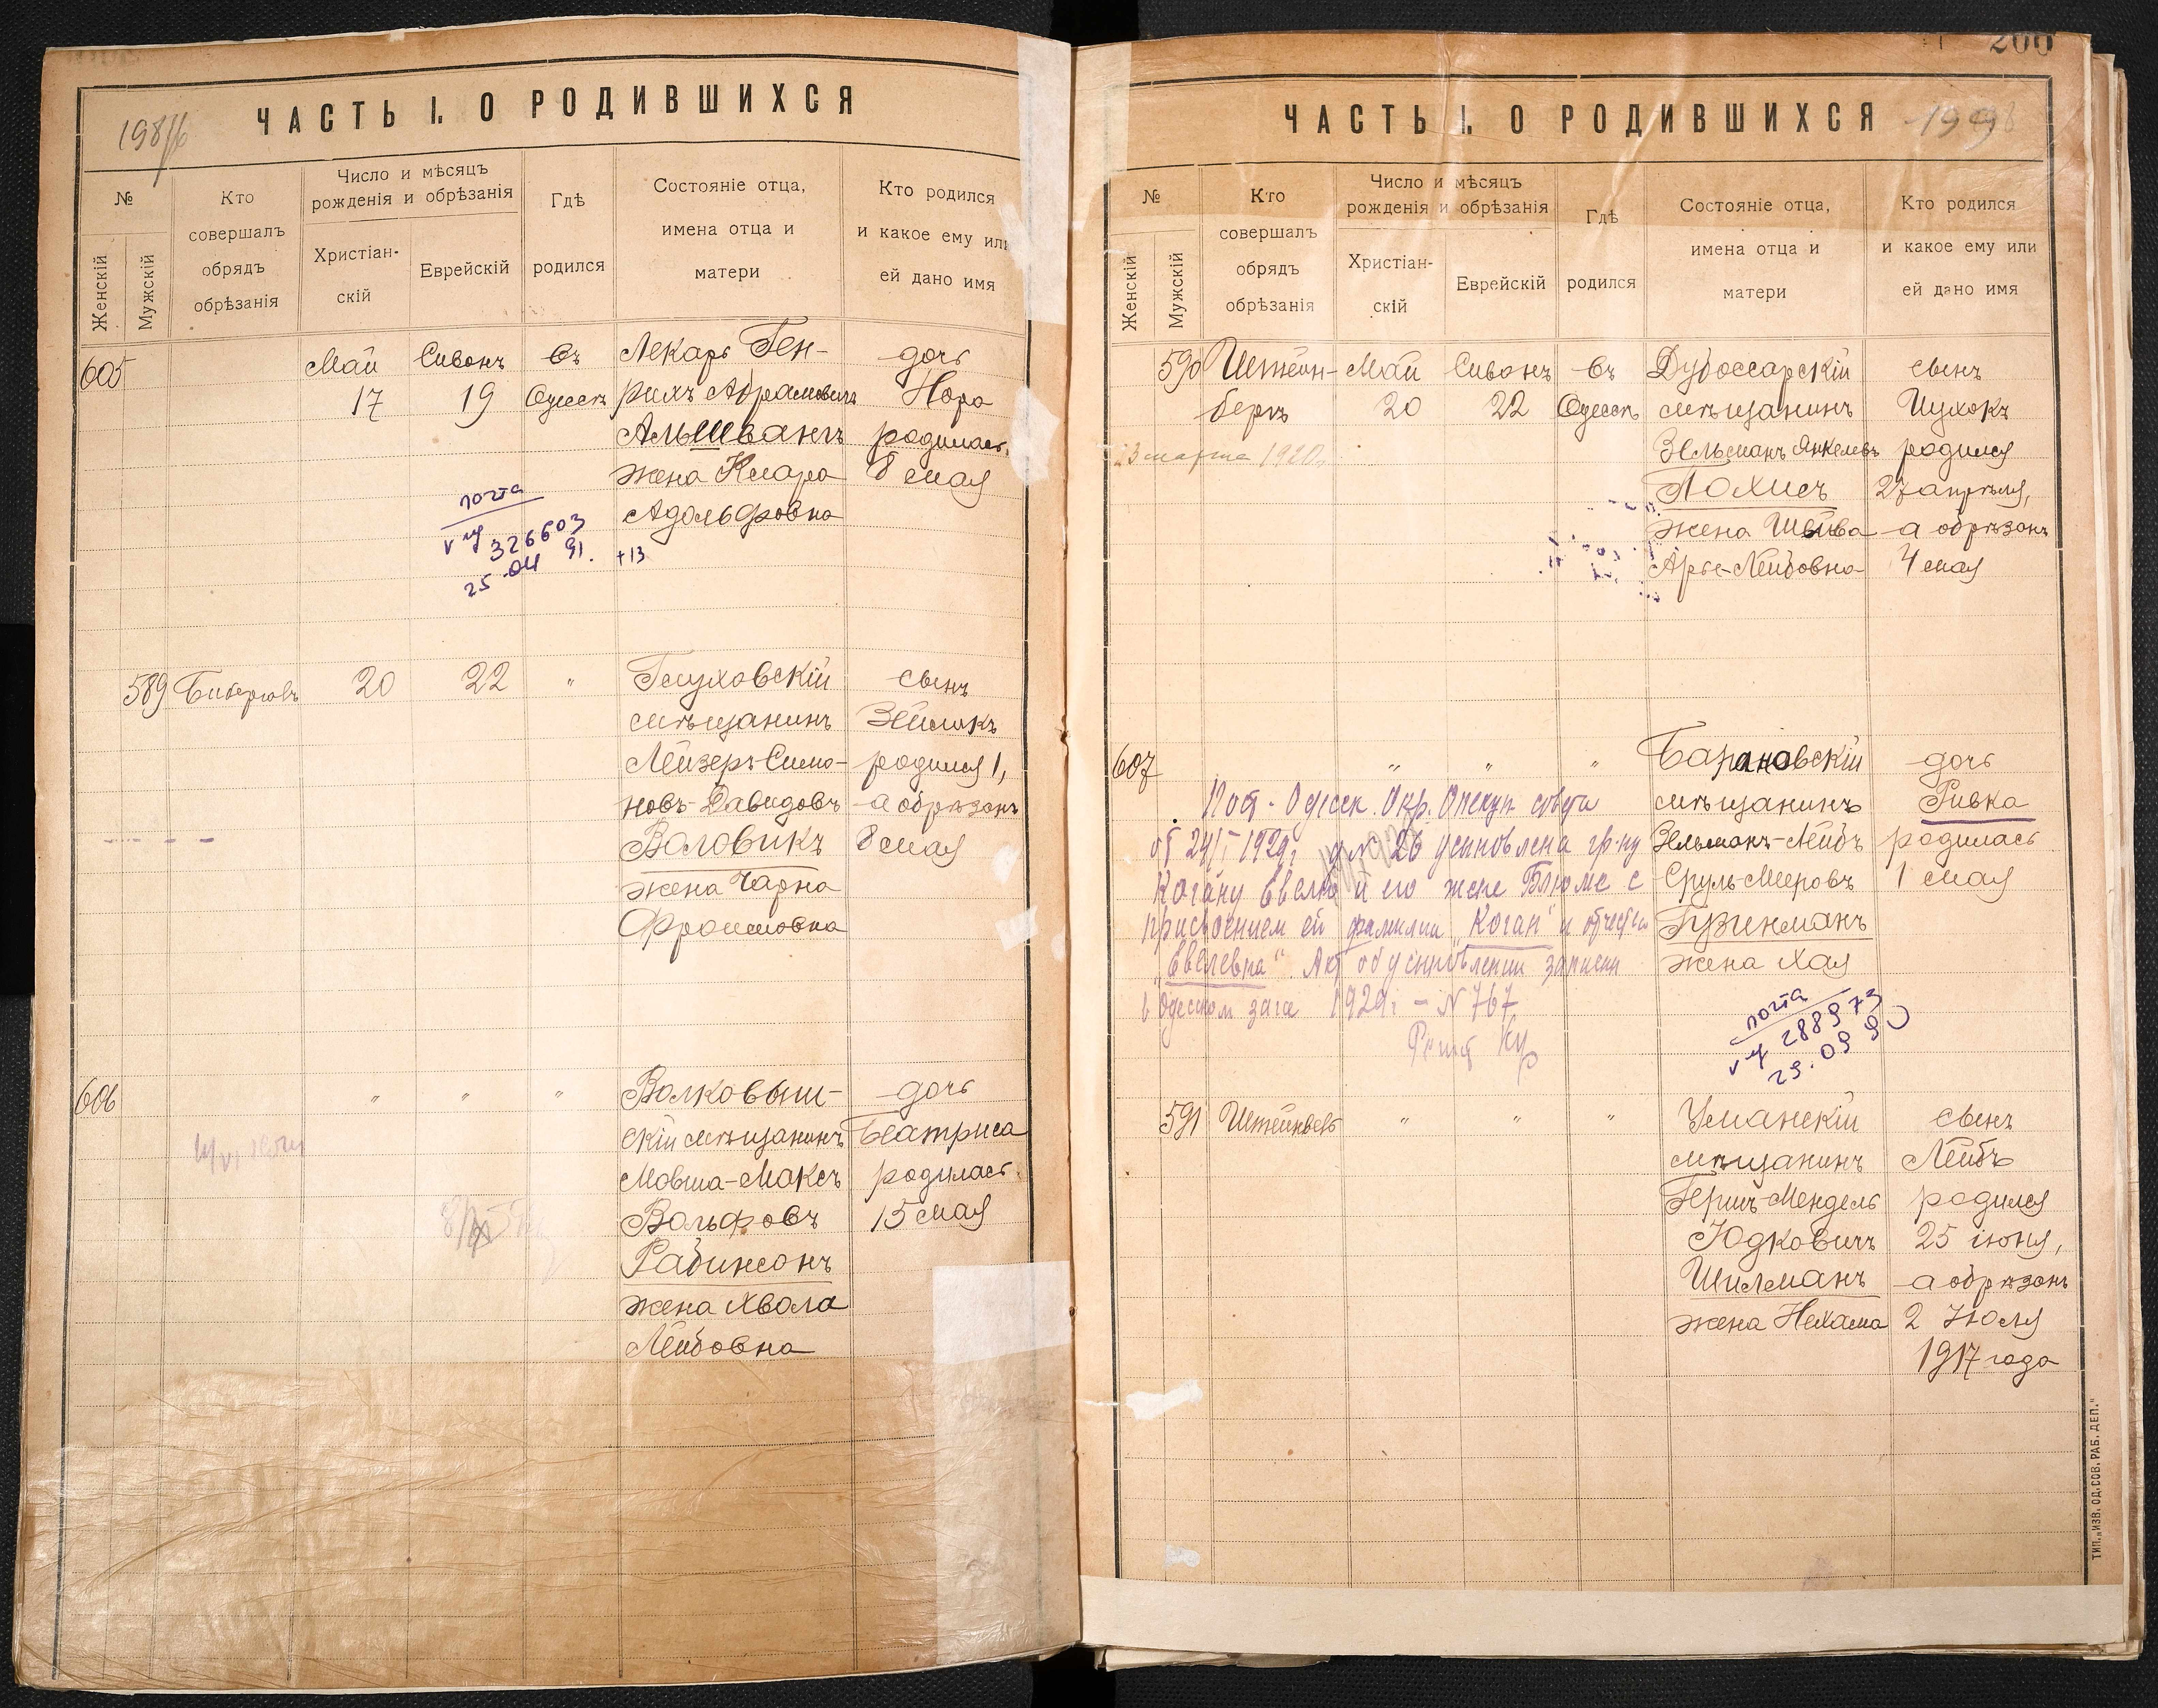 198
ЧАСТЬ I. О РОДИВШИХСЯ
№
Женскій
Мужскій
Кто совершалъ обрядъ обрѣзанія
Число и мѣсяцъ рожденія и обрѣзанія
Христіан-скій
Еврейскій
Гдѣ родился
Состояніе отца, имена отца и матери
Кто родился и какое ему или ей дано имя
605 Май Сивонъ Въ Лекарь Ген- дочь
17 19 Одессѣ рихъ Абрамовичъ Нора
Альшвангъ родилась
жена Клара 8 мая
Адольфовна
почта
326603
25.04 91.
+13
589 20 22 " Глуховскій сынъ
мѣщанинъ Зейликъ
Лейзеръ-Симо- родился 1,
новъ-Давидовъ а обрѣзанъ
Воловикъ 8 мая
жена Чарна
Фроимовна
606 " " " Волковыш- дочь
скій мѣщанинъ Беатриса
Мовша-Максъ родилась
Вольфовъ 15 мая
Рабинсонъ
жена Хвола
Лейбовна
200
ЧАСТЬ I. О РОДИВШИХСЯ
199
№
Женскій
Мужскій
Кто совершалъ обрядъ обрѣзанія
Число и мѣсяцъ рожденія и обрѣзанія
Христіан-скій
Еврейскій
Гдѣ родился
Состояніе отца, имена отца и матери
Кто родился и какое ему или ей дано имя
590 Штейн- Май Сивонъ Въ Дубоссарскій сынъ
бергъ 20 22 Одессѣ мѣщанинъ Ицхокъ
23 марта 1920 г. Зельманъ Янкелевъ родился
Лохисъ 27 апрѣля,
жена Шейва а обрѣзанъ
Арье-Лейбовна 4 мая
607 " " " Барановскій дочь
мѣщанинъ Ривка
Зельманъ-Лейбъ родилась
Сруль-Мееровъ 1 мая
Гузенманъ
жена Хая
Пост. Одесск. Окр. Опекун совета
от 24/I 1929г N 26 усыновлена гр-ну
Когану Евелю и его жене Блюме с
присвоением ей фамилии "Коган" и отчества
"Евелевна". Акт об усыновлении записан
в Одесском загсе 1929г - N 767
почта
288973
29.09 90
591 " " " Уманскій сынъ
мѣщанинъ Лейбъ
Гершъ-Мендель родился
Юдковичъ 25 іюня,
Шилманъ а обрѣзанъ
жена Нехама 2 Июля
1917 года
ТИП. „ИЗВ. ОД. СОВ. РАБ. ДЕП."